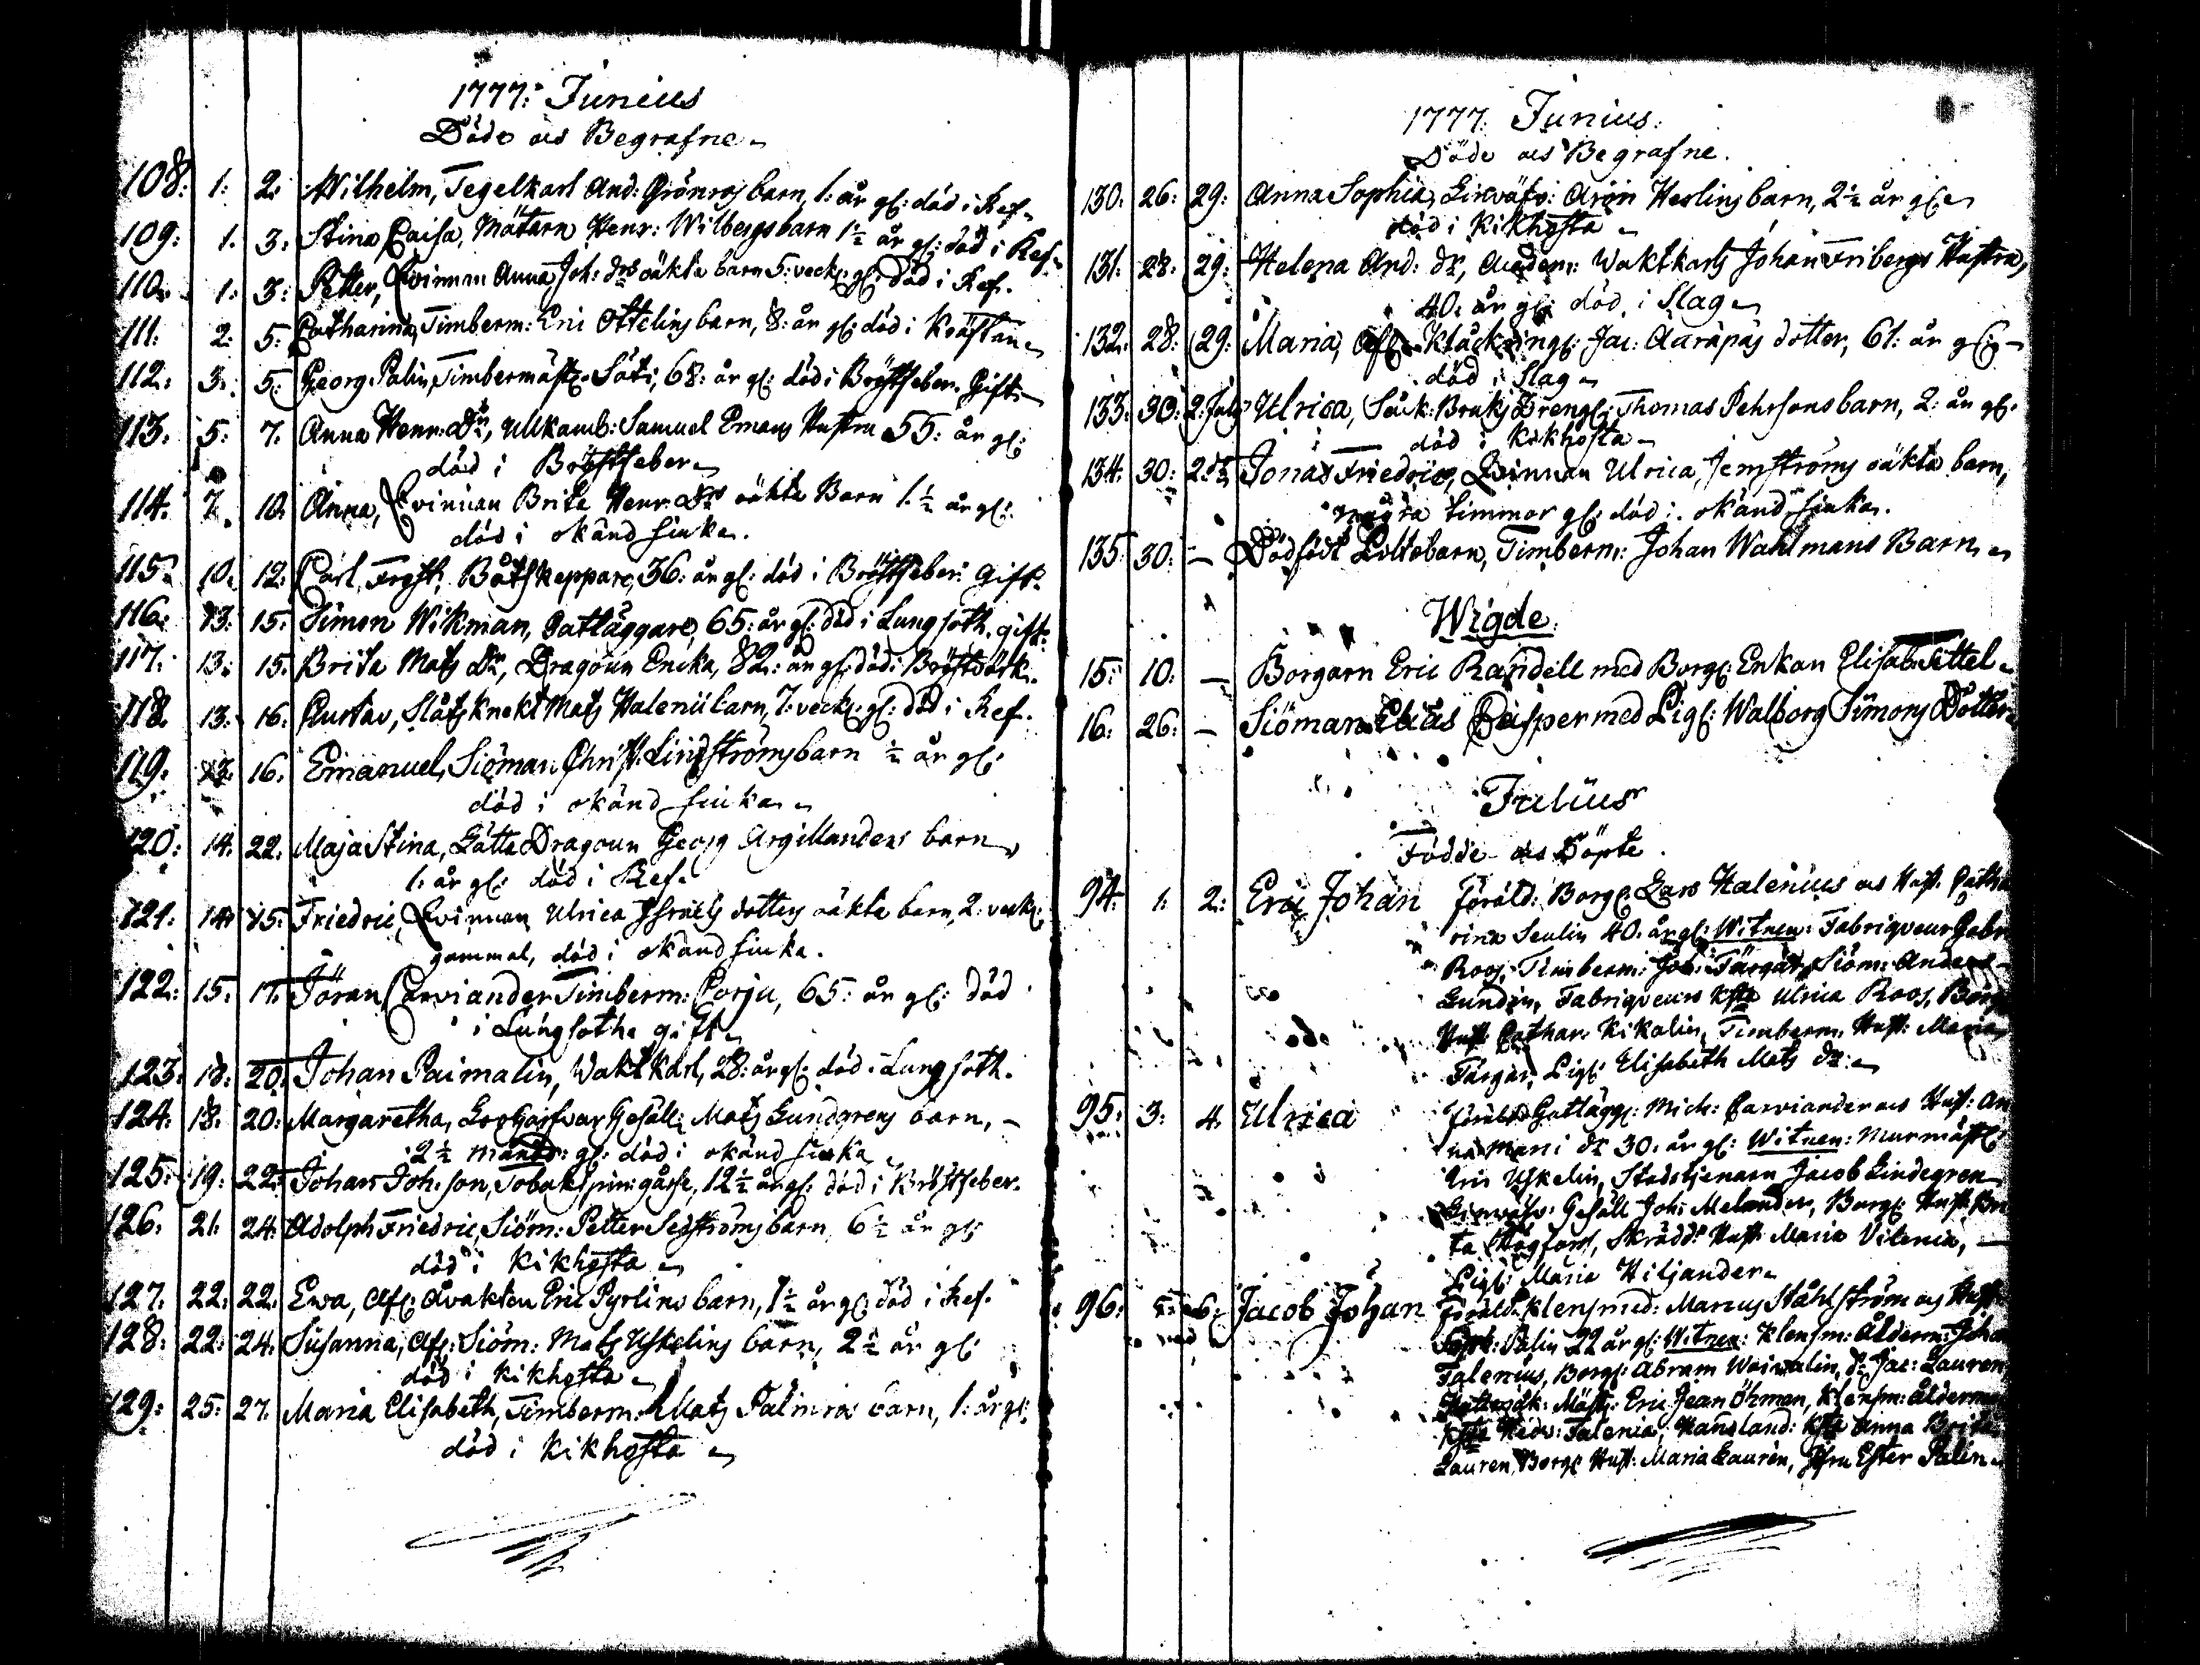 1777: Junius
Döde och Begrafne
108: 1: 2: Wilhelm, Tegelkarl And: Grönros barn, 1: år gl: död i Ref.
109: 1. 3: Stina Caisa, Mätarn Henr: Wilbergs barn 1½ år gl: död i Ref.
110. 1: 3: Petter, Qvinnan Anna Joh: drs oäkta barn 5: veck: gl: död i Ref.
111: 2: 5: Catharina, Timberm: Eric Ottelins barn, 8: år gl: död i Kräftan
112: 3. 5: Georg Palin, Timbermäst: Säti, 68: år gl: död i Bröstfeber. Gift
113. 5: 7. Anna Henr: Dr, Ullkamb: Samuel Emans Hustru 55: år gl:
död i Bröstfeber
114. 7. 10. Anna, Qvinnan Brita Henr: Drs oäkta Barn 1.½ år gl:
död i okänd siuka.
115. 10. 12: Carl Frost, Båtskeppare, 36: år gl: död i Bröstfeber. Gift.
116. 13: 15. Simon Wikman, Gatläggare, 65: år gl: död i Lungsoth. gift.
117. 13: 15. Brita Mats Dr, Dragoun Enka, 82: år gl: död i Bröstvärk.
118. 13. 16. Gustav, Slåtsknekt Mats Halenii barn, 7: veck: gl: död i Ref.
119. 13. 16. Emanuel, Siöman Christ: Lindströms barn ½ år gl:
död i okänd siuka
120: 14. 22. Maja Stina, Lätta Dragoun Georg Argillanders barn
1: år gl: död i Ref.
121: 14. 15: Friedric, Qvinnan Ulrica Israels dotters oäkta barn, 2: veck:
gammal, död i okänd siuka.
122: 15. 17. Jöran Carviander Timberm: Corju, 65: år gl: död
i Lungsoth. gift
123: 18: 20. Johan Paimalin, Waktkarl, 28: år gl: död i Lungsoth.
124. 18. 20: Margaretha, Logarfvar Gesäll: Mats Lundgrens barn, –
2½ månad: gl: död i okänd siuka
125: 19: 22: Johan Joh: son, Tobakspin: gåsse, 12½ år gl: död i Bröstfeber.
126. 21. 24: Adolph Friedric, Siöm: Petter Sedströms barn 6½ år gl:
död i Kikhosta
127. 22: 22. Ewa, Afl: Åvakten Eric Pyrlins barn, 1½ år gl: död i Ref.
128: 22: 24. Susanna, Afl: Siöm: Mats Uskelins barn, 2½ år gl:
död i kikhosta
129: 25: 27. Maria Elisabeth, Timberm: Mats Palmros barn, 1: år gl:
död i Kikhosta
1777. Junius:
Döde och Begrafne.
130. 26: 29: Anna Sophia, Linväfv: Aron Heslins barn, 2½ år gl:
död i Kikhosta
131. 28. 29: Helena And: dr, Academ: Waktkarls Johan Fribergs Hustru,
40: år gl: död i Slag
132. 28: 29: Maria, Afl: Klåckring: Jac: Aarapås dotter, 61: år gl: –
död i Slag
133. 30: 2: July Ulrica, Sück: Bruks Drengl: Thomas Pehrsons barn, 2: år gl:
död i Kikhosta
134. 30: 2: do Jonas Friedric, Qvinnan Ulrica Jernströms oäkta barn,
några timmar gl: död i okänd siuka.
135 30: – Dödfödt Giltebarn, Timberm: Johan Wahlmans Barn
Wigde.
15: 10: – Borgarn Eric Randell med Borg: Enkan Elisab: Tittel
16. 26: – Siöman Elias Casper med Pig: Walborg Simons Dotter
Julius
Födde och Döpte.
94. 1. 2: Eric Johan Föräld: Borg: Lars Halenius och Hust. Catha
rina Seulin 40. år gl: Witnen: Fabriqveur Gabr
Roos, Timberm: Joh: Färgär, Siöm: Anders
Lundin, Fabriqveurs Ksta Ulrica Roos, Borg
Hust Cathar: Kikalin, Timberm. Hust: Maria
Färgär, Pig: Elisabeth Mats Dr
95: 3: 4. Ulrica Föräld: Gatlägg: Mich: Carviander och Hust: An
na Mari dr 30. år gl: Witnen: Murmäst:
Eric Uskelin, Stadstjenarn Jacob Lindegren
Linwäfv: Gesäll Joh: Melander, Borg: Hust Bri
ta Högfors, Skrädd: Hust Maria Vilenia, –
Pig: Maria Hiljander
96: 5: 6: Jacob Johan Föräld: Klensmed: Marcus Ståhlström och Hust
Palin 22 år gl: Witnen: Klensm: Ålderm: Joha
Falenius, Borg: Abram Waivalin, dr Jac: Lauren
Mäst: Eric Jean Öhman, Klensm: Ålderman
Ksta Hedv: Falenia, Handland: Ksta Anna Brita
Lauren, Borg: Hust: Maria Lauren, Jfru Ester Palin